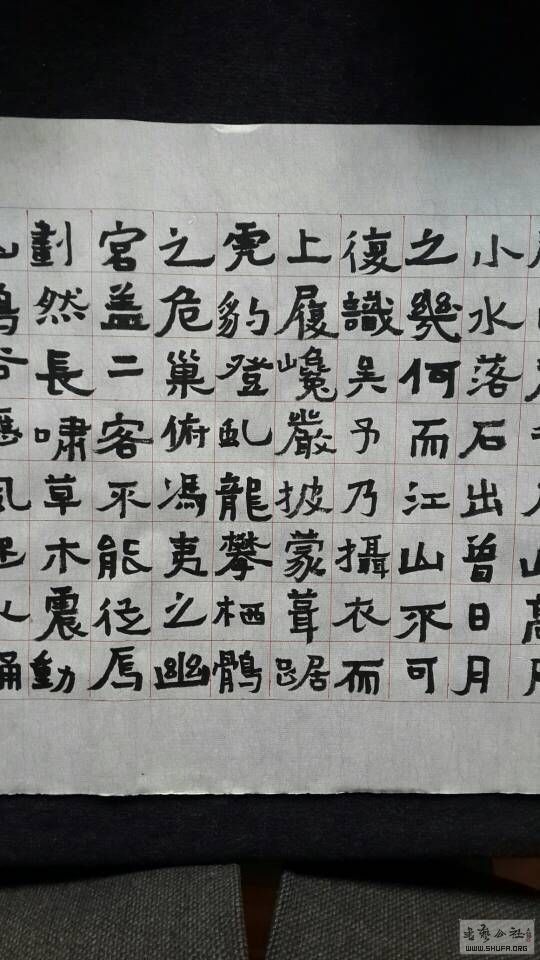 小水落石出曾日月
之幾何而江山不可
復識吳予乃攝衣而
上履巉嚴披蒙葺踞
虎豹登虬龍攀栖鶻
之危巢俯馮夷之幽
宮盖二客不能從焉
劃然長嘯草木震動
WWW.SHUFA.ORG